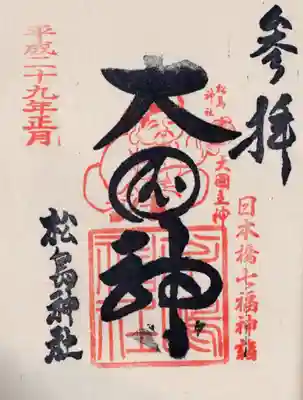 参拝
日本橋七福神詣
松島神社
大国主神
大国神
平成二十九年正月
松島神社